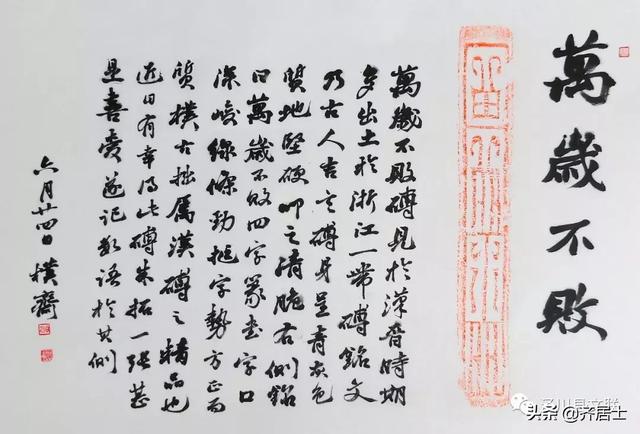 萬歲不敗
萬歲不敗磚見於漢晉時期
多出土於浙江一帶磚銘文
乃古人吉言磚身呈青灰色
質地堅硬叩之清脆右側銘
曰萬歲不敗四字篆書字口
深峻線條勁挺字勢方正而
質樸古拙屬漢磚之精品也
近日有幸得此磚朱拓一張甚
是喜愛遂記數語於其側
六月廿四日 樸齋
川县文联
头条 @齐居士